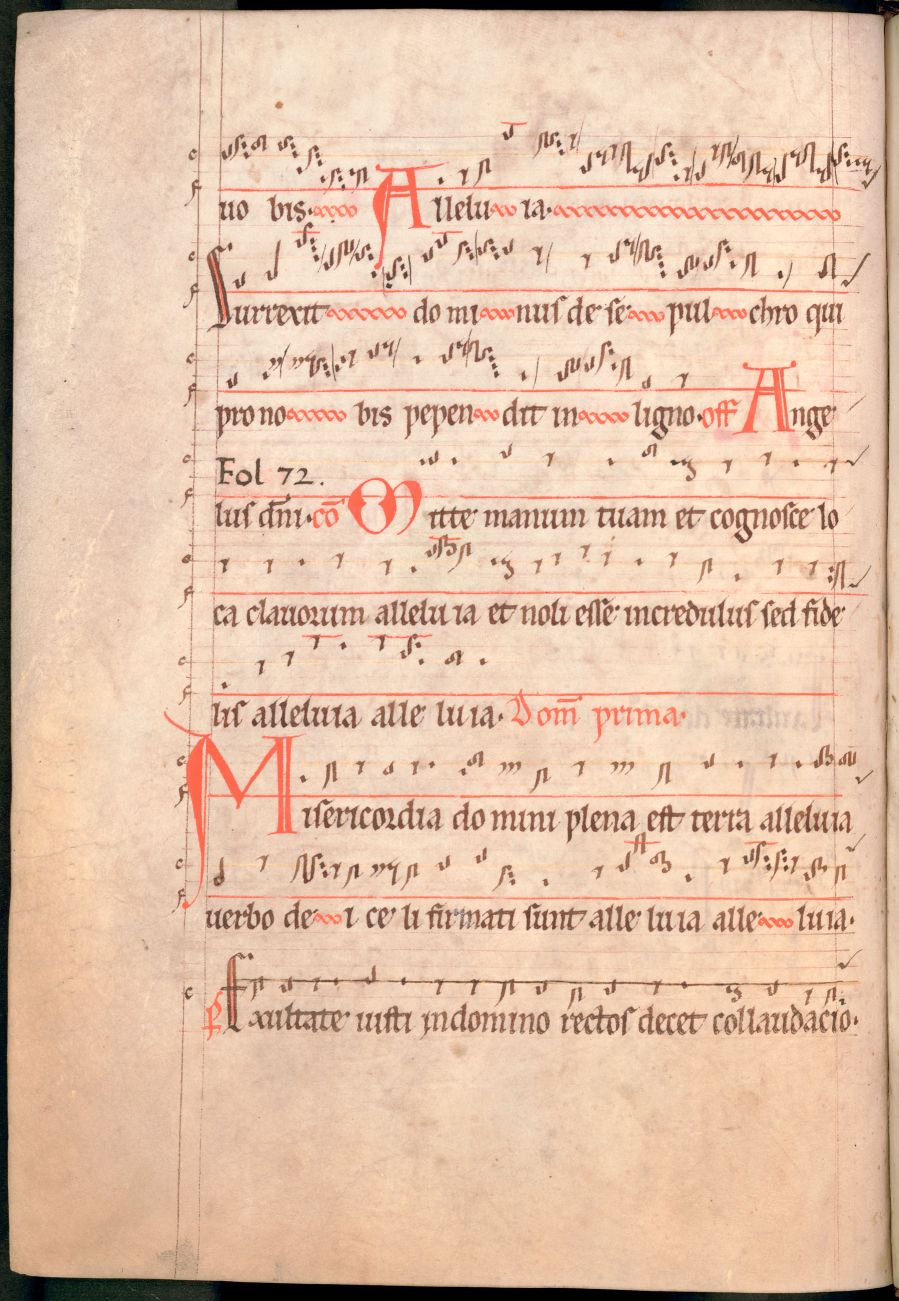 uo bis. Allelu ia.
Surrexit do mi nus de se pul chro qui
pro no bis pepen dit in ligno. off Ange
Fol 72.
lus dñi. cõ Mitte manum tuam et cognosce lo
ca clauorum allelu ia et noli esse incredulus sed fide
lis alleluia alle luia. Dom̃ prima.
Misericordia do mini plena est terra alleluia
uerbo de i ce li firmati sunt alle luia alle luia.
Exultate iusti in domino rectos decet collaudacio.